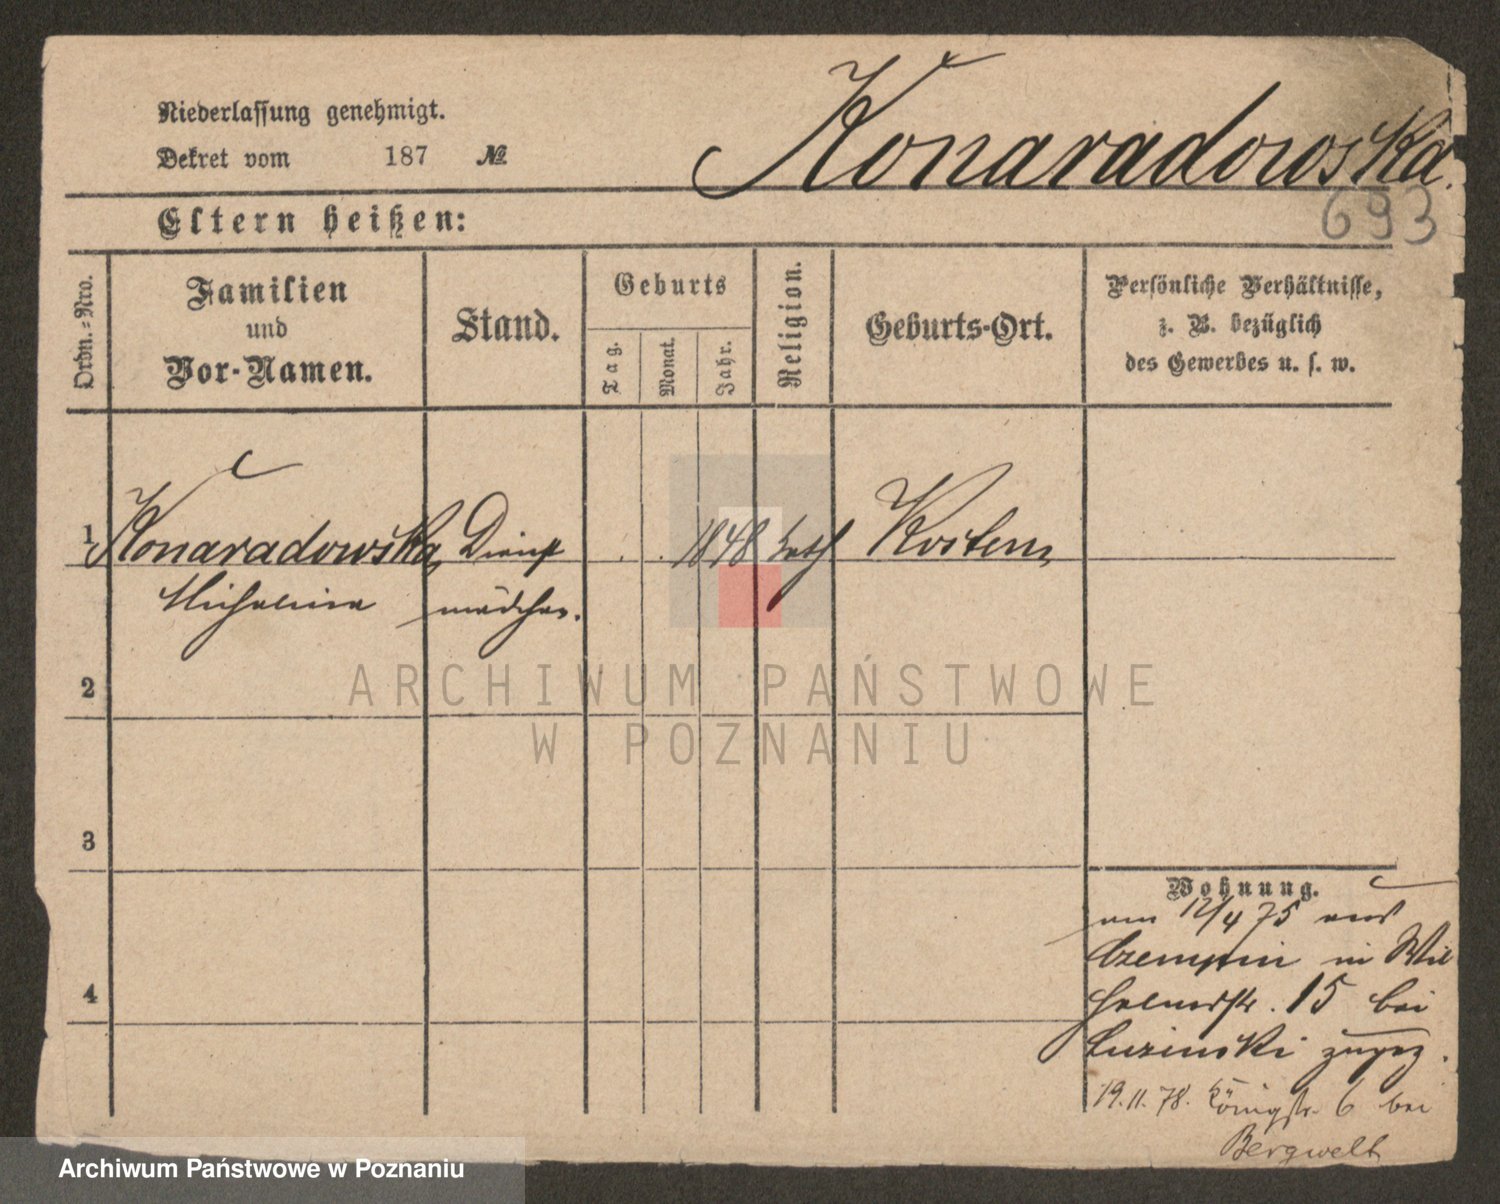 Niederlassung genehmigt.
Dekret vom 187 №
Konaradowska.
693
Eltern heißen:
Ordn.=Nro.
Familien
und
Vor-Namen.
Stand.
Geburts
Tag.
Monat.
Jahr.
Religion.
Geburts-Ort.
Persönliche Verhältnisse,
z. B. bezüglich
des Gewerbes u. s. w.
1 Konaradowska, Dienst . . 1848 kath Kosten,
Michalina mädchen.
2
3
4
Wohnung.
am 12/4 75 aus
Czempin in Wil
helmsstr. 15 bei
zugez.
19.11.78. Königstr. 6 bei
Bergwelt
ARCHIWUM PAŃSTWOWE
W POZNANIU
Archiwum Państwowe w Poznaniu